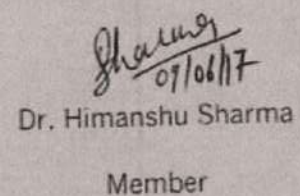 Sharma
09/06/17
Dr. Himanshu Sharma
Member